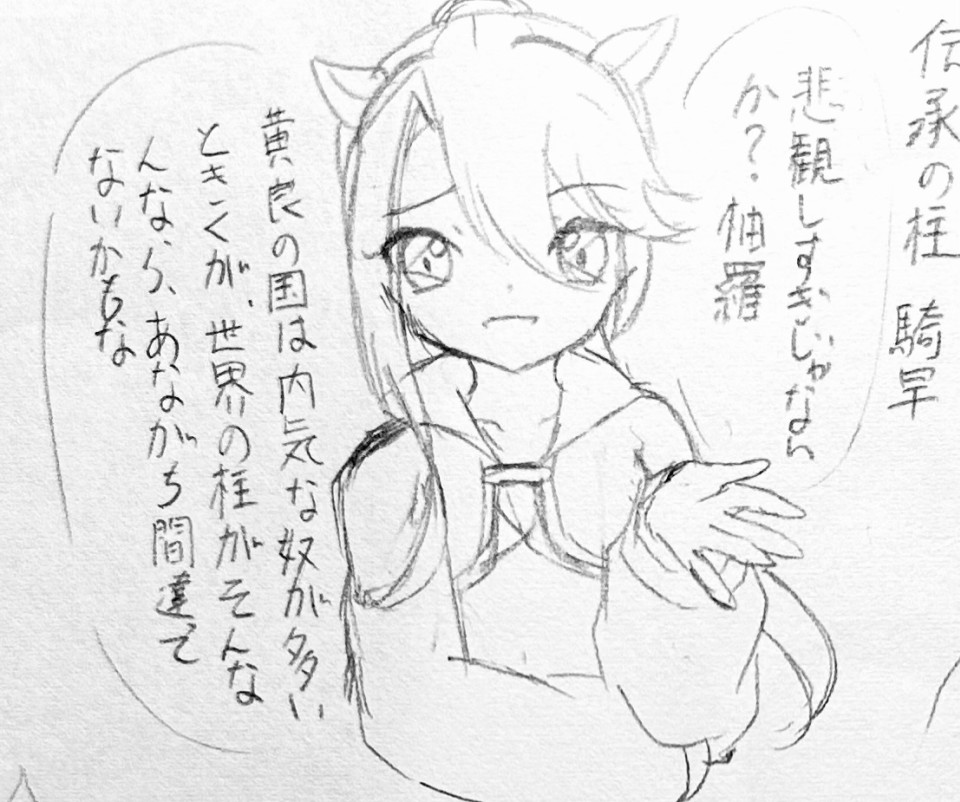 伝承の柱 騎早
悲観しすぎじゃない
か？柚羅
黄良の国は内気な奴が多い
ときくが、世界の柱がそんな
んなら、あながち間違って
ないかもな